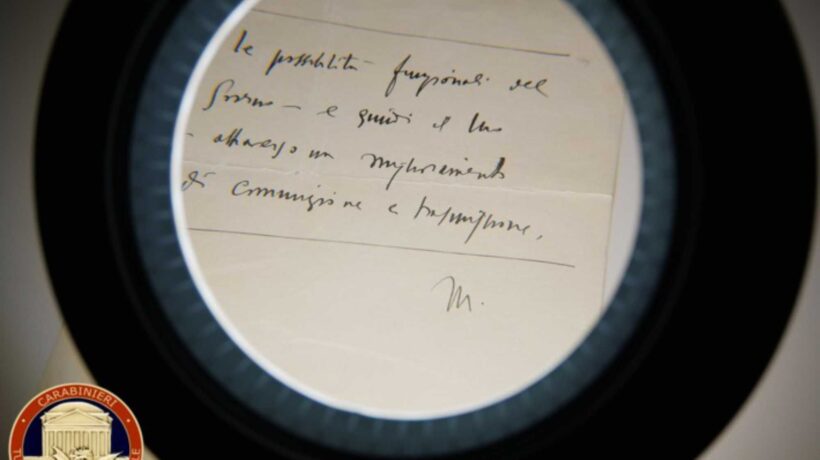 le possibilità funzionali del
Governo – e quindi il suo
– attraverso un miglioramento
di comunizione e trasmissione.
M.
CARABINIERI